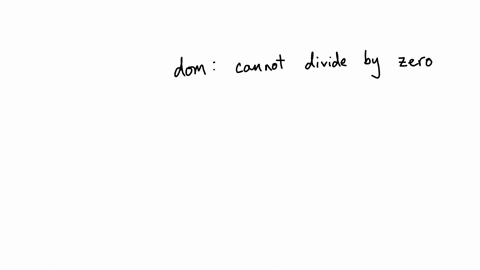 dom: cannot divide by zero